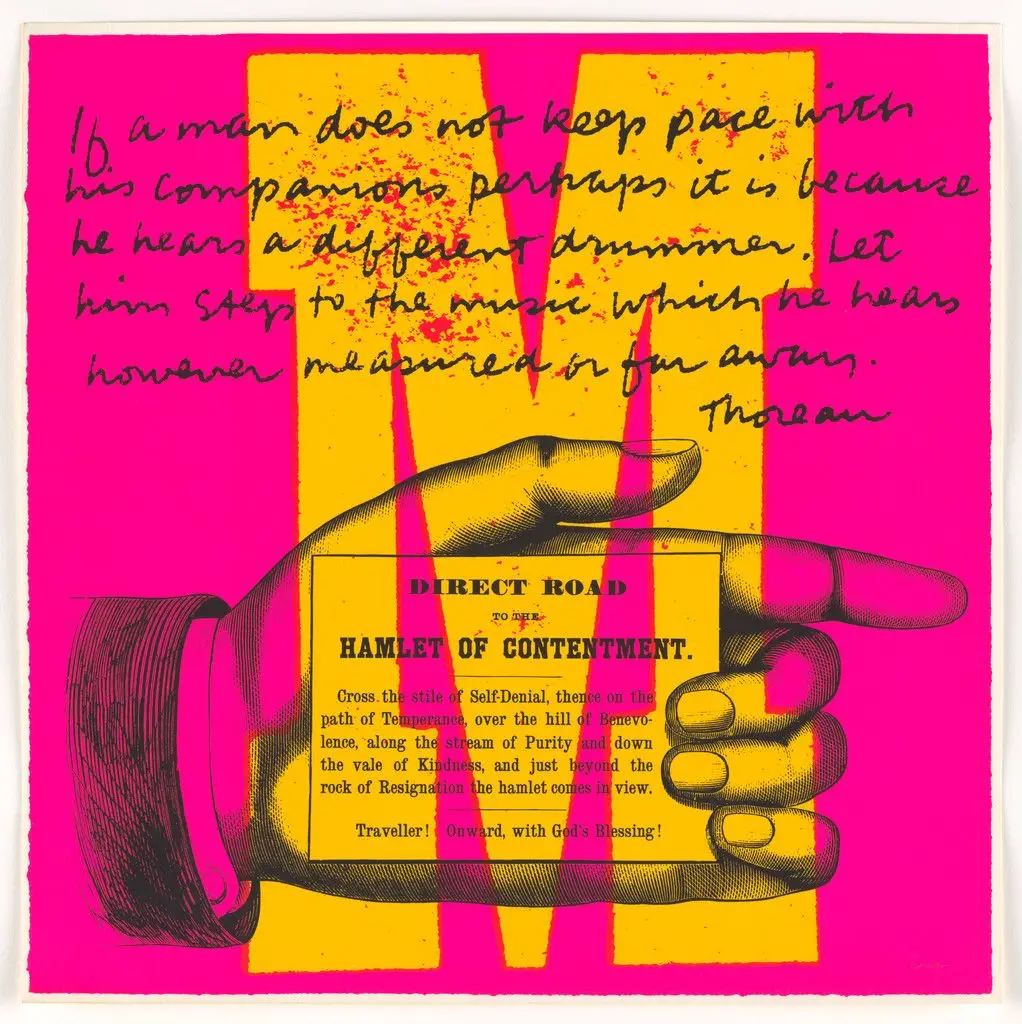 M
If a man does not keep pace with
his companions perhaps it is because
he hears a different drummer. Let
him step to the music which he hears
however measured or far away.
Thoreau
DIRECT ROAD
TO THE
HAMLET OF CONTENTMENT.
Cross the stile of Self-Denial, thence on the
path of Temperance, over the hill of Benevo-
lence, along the stream of Purity and down
the vale of Kindness, and just beyond the
rock of Resignation the hamlet comes in view.
Traveller! Onward, with God's Blessing!